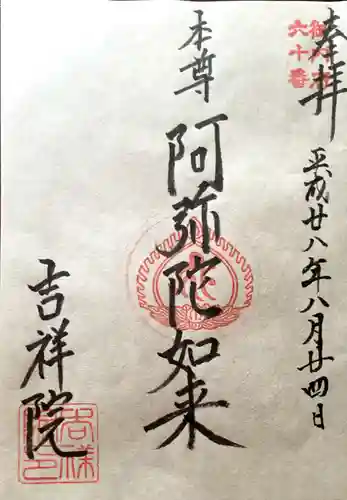 奉拝
六十番
平成廿八年八月廿四日
本尊
阿弥陀如来
吉祥院